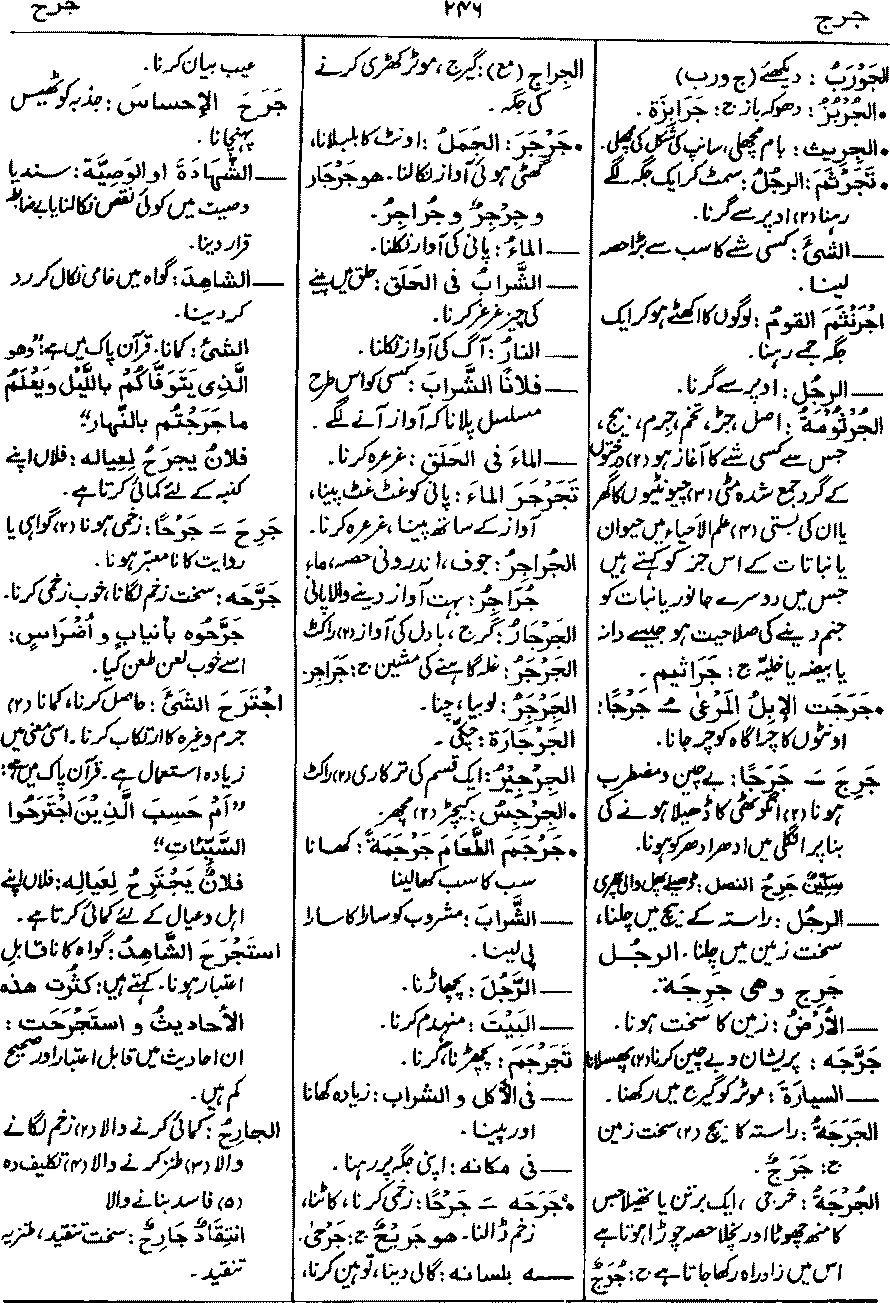 جرج
۲۴۶
جرح
الجَوْرَبُ : دیکھئے (ج ورب)
•الجُرْبُزُ: دھوکہ باز ج: جَرَابِزَة .
•الجِرِيث: بام مچھلی، سانپ کی شکل کی مچھلی.
•تَجَرْثَمَ: الرجُلُ: سمٹ کر ایک جگہ لگے
رہنا (۲) اوپر سے گرنا.
— الشئَ : کسی شے کا سب سے بڑا حصہ
لینا.
اجْرَنْثَمَ القومُ : لوگوں کا اکھٹے ہوکر ایک
جگہ جمے رہنا.
— الرجُل : اوپر سے گرنا.
الجُرْثُومَةُ : اصل، جڑ، تخم، جرم، بیج،
جس سے کسی شے کا آغاز ہو (۲) درختوں
کے گرد جمع شدہ مٹی (۳) چیونٹیوں کا گھر
یا ان کی بستی (۴) علم الاَحیاء میں حیوان
یا نباتات کے اس جز کو کہتے ہیں
جس میں دوسرے جانور یا نبات کو
جنم دینے کی صلاحیت ہو جیسے دانہ
یا بیضہ یا خلیہ ج: جَرَاثيم .
•جَرَجَت الإبلُ المَرْعىٰ ـُ جَرْجًا :
اونٹوں کا چراگاہ کو چر جانا.
جَرِجَ ـَ جَرَجًا : بے چین و مضطرب
ہونا (۲) انگوٹھی کا ڈھیلا ہونے کی
بنا پر انگلی میں ادھر ادھر کو ہونا.
سِكِّينٌ جَرِجُ النصل : ڈھیلے پھل والی چھری
— الرجُل : راستہ کے بیچ میں چلنا،
سخت زمین میں چلنا. الرجُل
جَرِج وهى جَرِجَة.
— الأرْضُ : زمین کا سخت ہونا.
جَرَّجَه : پریشان و بے چین کرنا (۲) پھسلانا
— السيارَةَ : موٹر کو گیرج میں رکھنا.
الجَرَجَةُ : راستہ کا بیچ (۲) سخت زمین
ج: جَرَجٌ.
الجُرْجَةُ : خرجی ، ایک برتن یا تھیلا جس
کا منھ چھوٹا اور نچلا حصہ چوڑا ہوتا ہے
اس میں زاد راہ رکھا جاتا ہے ج: جُرَجٌ
الجِراج (مع): گیرج، موٹر کھڑی کرنے
کی جگہ .
•جَرْجَرَ: الجَمَلُ : اونٹ کا بلبلانا،
گھٹی ہوئی آواز نکالنا. هو جَرْجَار
و جِرْجِرٌ و جُراجِرٌ.
— الماءُ : پانی کی آواز نکلنا.
— الشَّرابُ فى الحَلق : حلق میں پینے
کی چیز غرغر کرنا.
— النارُ : آگ کی آواز نکلنا.
— فلانًا الشَّرابَ : کسی کو اس طرح
مسلسل پلانا کہ آواز آنے لگے .
— الماءَ فى الحَلق : غرغرہ کرنا.
تَجَرْجَرَ الماءَ : پانی کو غٹ غٹ پینا،
آواز کے ساتھ پینا، غرغرہ کرنا.
الجُراجِرُ : جوف، اندرونی حصہ، ماء
جُرَاجِرُ : بہت آواز دینے والا پانی
الجَرْجَارُ : گرج، بادل کی آواز (۲) راکٹ
الجَرْجَرُ : غلہ گاہنے کی مشین ج: جَراجر
الجِرْجِرُ : لوبیا، چنا.
الجَرْجارَة : چکّی .
الجِرْجِيْرُ : ایک قسم کی ترکاری (۲) راکٹ
•الجِرْجِسُ : کیچڑ (۲) مچھر.
•جَرْجَمَ الطَّعَامَ جَرْجَمَةً : کھانا
سب کا سب کھا لینا
— الشَّرابَ : مشروب کو سارا کا سارا
پی لینا.
— الرَّجُلَ : پچھاڑنا.
— البَيْتَ : منہدم کرنا.
تَجَرْجَمَ : پچھڑنا، گرنا.
— فى الأكل و الشراب : زیادہ کھانا
اور پینا.
— فى مكانه : اپنی جگہ پر رہنا.
•جَرَحَه ـَ جَرْحًا : زخمی کرنا، کاٹنا،
زخم ڈالنا. هو جَرِيْحٌ ج: جَرْحىٰ.
—ـه بلسانه : گالی دینا، توہین کرنا،
عیب بیان کرنا.
جَرَحَ الإحساسَ : جذبہ کو ٹھیس
پہنچانا.
— الشَّهَادَةَ او الوَصِيَّة : سند یا
وصیت میں کوئی نقص نکالنا یا بے ضابطہ
قرار دینا.
— الشاهِدَ : گواہ میں خامی نکال کر رد
کر دینا.
الشئَ : کمانا. قرآن پاک میں ہے: "وهو
الَّذِى يَتَوَفَّاكُمْ بالليْل وَيَعْلَمُ
ما جَرَحْتُم بالنَّهار"
فلانٌ يجرَحُ لِعياله : فلاں اپنے
کنبہ کے لئے کمائی کرتا ہے.
جَرِحَ ـَ جَرْحًا : زخمی ہونا (۲) گواہی یا
روایت کا نا معتبر ہونا.
جَرَّحَه : سخت زخم لگانا، خوب زخمی کرنا.
جَرَّحُوه بأنيابٍ و أَضْرَاسٍ :
اسے خوب لعن طعن کیا.
اجْتَرَحَ الشئَ : حاصل کرنا، کمانا (۲)
جرم وغیرہ کا ارتکاب کرنا. اسی معنی میں
زیادہ استعمال ہے. قرآن پاک میں ہے:
"اَمْ حَسِبَ الَّذِيْنَ اجْتَرَحُوا
السَّيِّئَاتِ"
فلانٌ يَجْتَرِحُ لِعيالِه : فلاں اپنے
اہل و عیال کے لئے کمائی کرتا ہے.
استَجْرَحَ الشَّاهِدُ : گواہ کا نا قابل
اعتبار ہونا. کہتے ہیں: كثُرت هذه
الأحاديثُ و استَجْرَحَت :
ان احادیث میں قابل اعتبار اور صحیح
کم ہیں.
الجارِحُ : کمائی کرنے والا (۲) زخم لگانے
والا (۳) طنز کرنے والا (۴) تکلیف دہ
(۵) فاسد بنانے والا
انتِقادٌ جارحٌ : سخت تنقید، طنزیہ
تنقید.